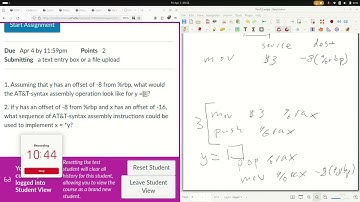 Start Assignment
Due Apr 4 by 11:59pm Points 2
Submitting a text entry box or a file upload
1. Assuming that y has an offset of -8 from %rbp, what would
the AT&T-syntax assembly operation look like for y =
2. if y has an offset of -8 from %rbp and x has an offset of -16,
what sequence of AT&T-syntax assembly instructions could be
used to implement x = *y?
Recording
10:44
Stop
logged into
Student View
Resetting the test
student will clear all
history for this student,
allowing you to view the
course as a brand new
student.
Reset Student
Leave Student
View
source dest
mov $3 -8(%rbp)
3 mov $3 %rax
push %rax
y =
pop %rax
mov %rax -8(%rbp)